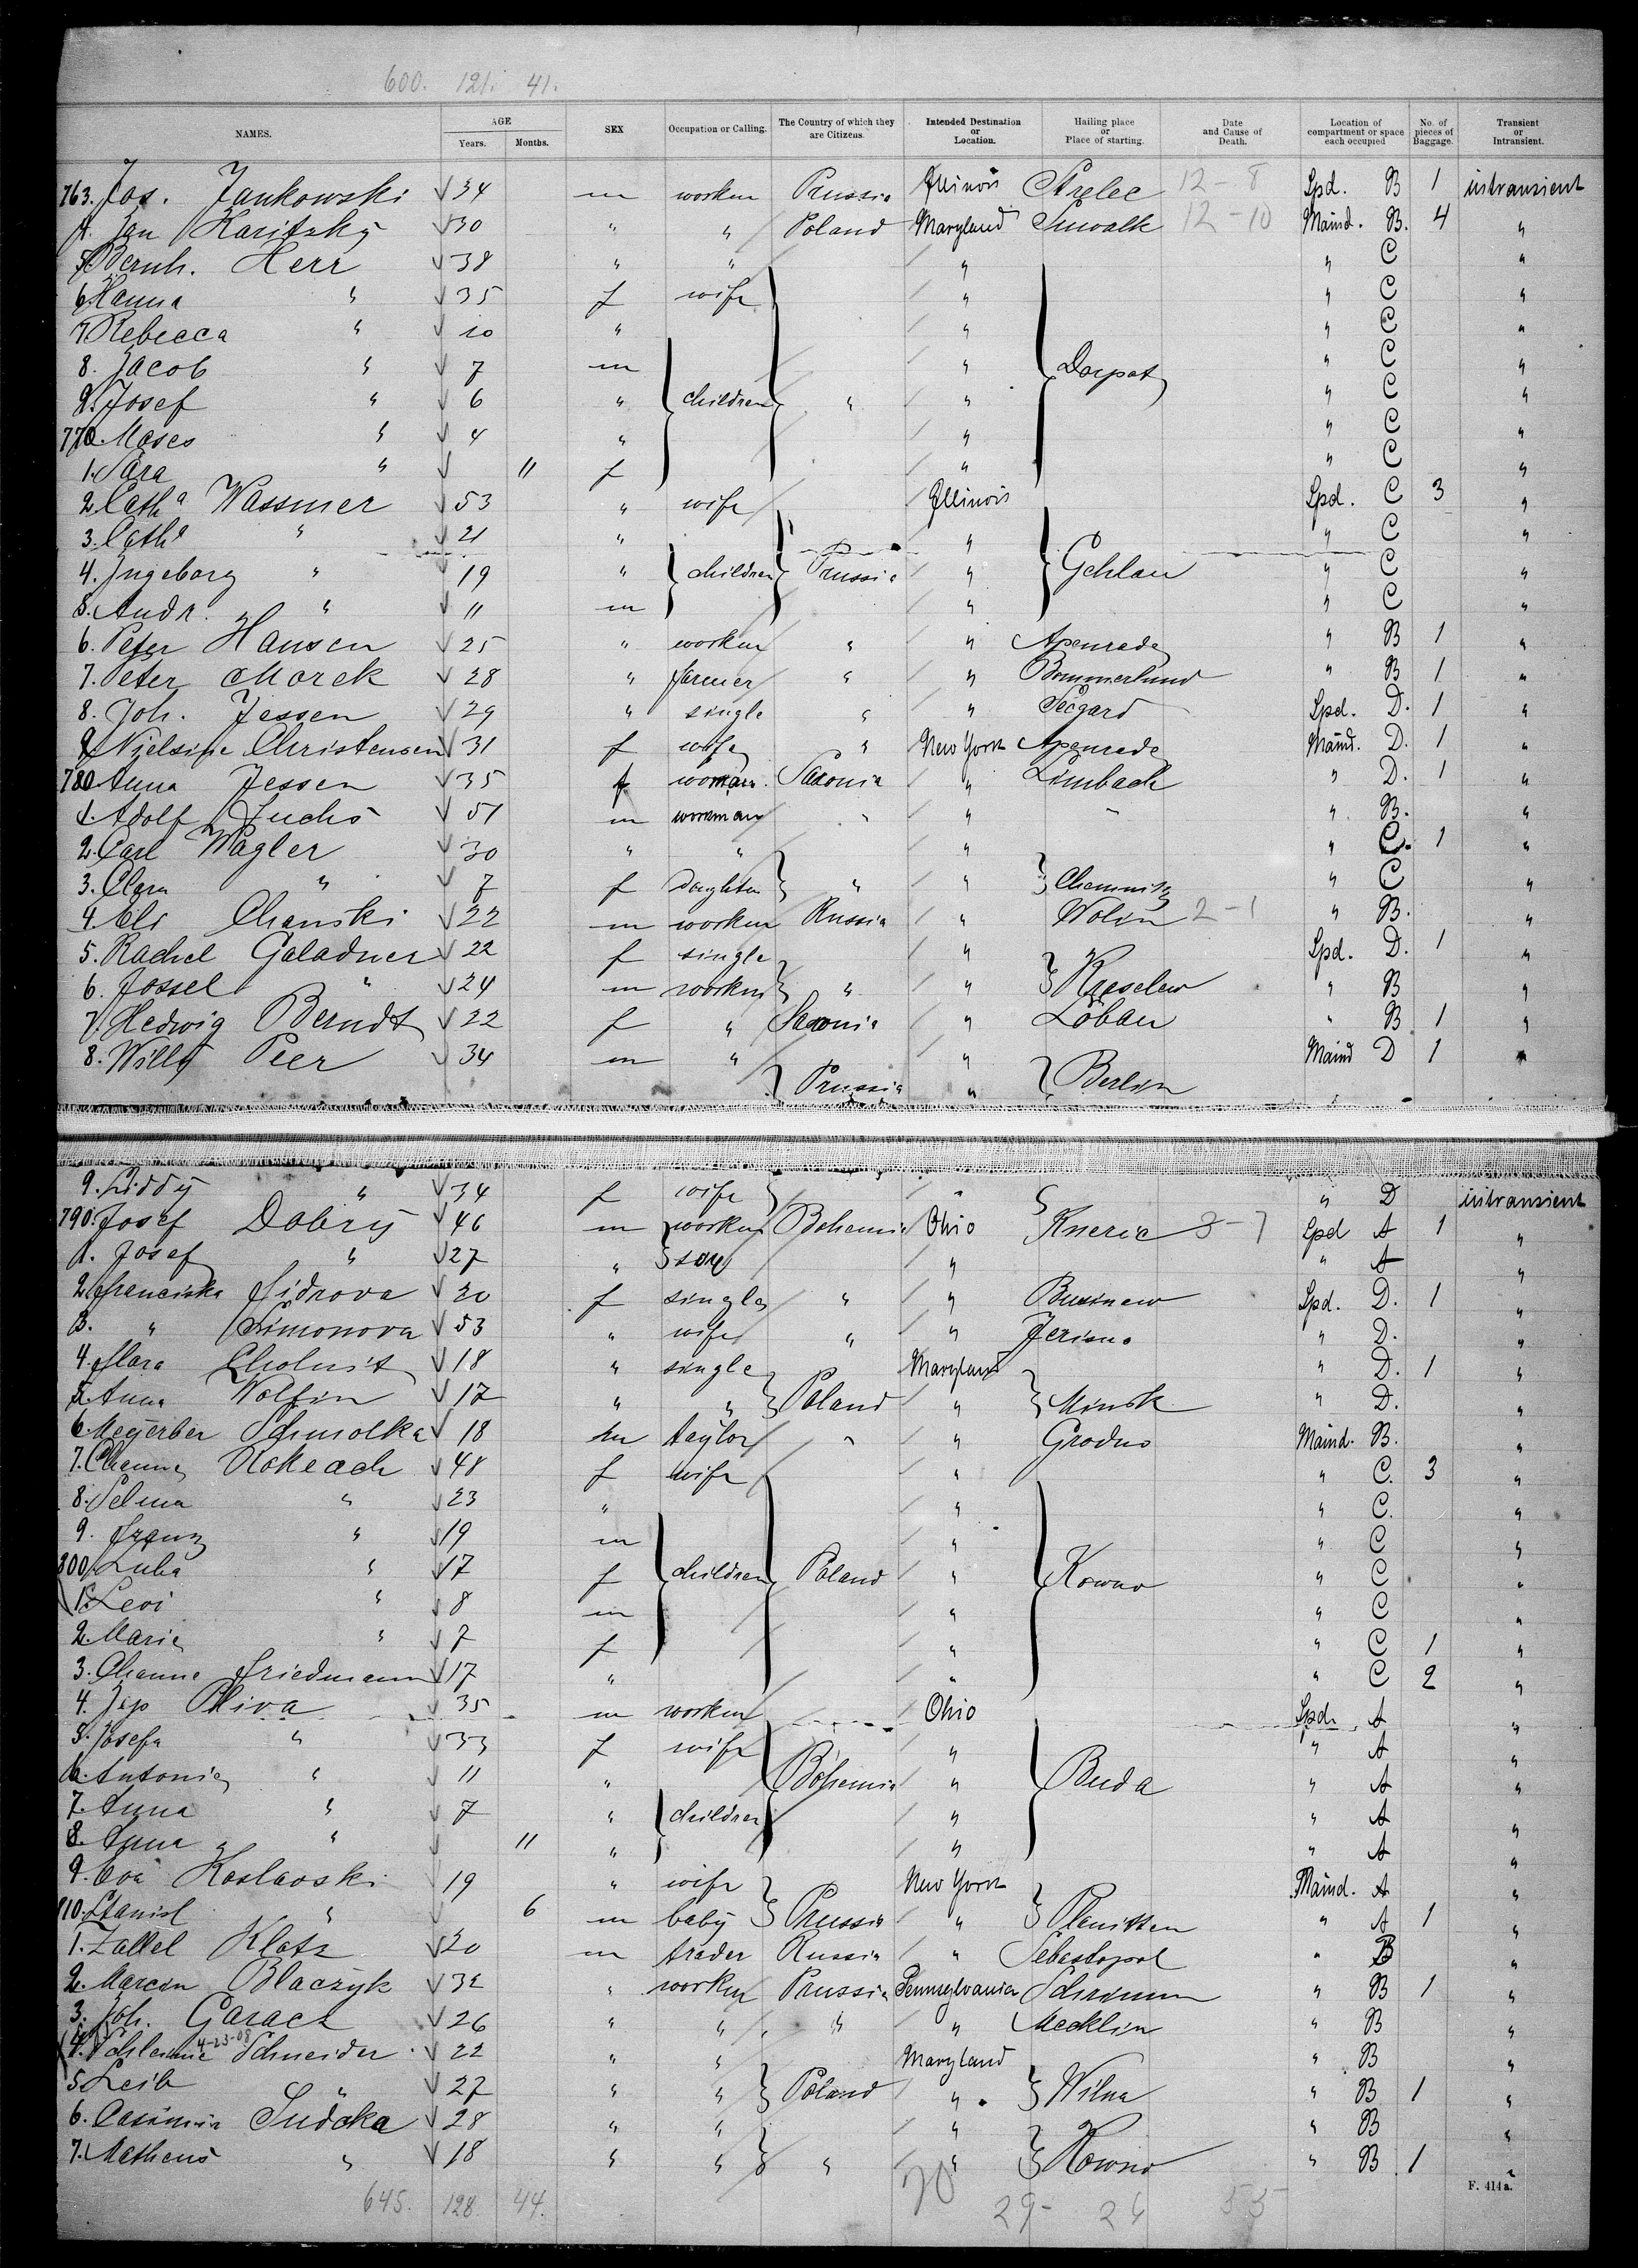 600. 121. 41.
NAMES. AGE Years. Months. SEX Occupation or Calling. The Country of which they are Citizens. Intended Destination or Location. Hailing place or Place of starting. Date and Cause of Death. Location of compartment or space each occupied No. of pieces of Baggage. Transient or Intransient.
763. Jos. Jankowski 34 m worker Prussia Illinois Strelec 12-8 Spd. B 1 intransient
4. Jan Karitzky 30 " " Poland Maryland Suwalk 12-10 Maind. B. 4 "
5. Bernh. Herr 38 " " " " C "
6. Hanna " 35 f wife " " C "
7. Rebecca " 10 " " " C "
8. Jacob " 7 m " Dorpat " C "
9. Josef " 6 " children " " " C "
770. Moses " 4 " " " C "
1. Sara " 11 f " " C "
2. Catha Wassmer 53 " wife Illinois Spd. C 3 "
3. Catha " 21 " " " C "
4. Ingeborg " 19 " children Prussia " Gehlau " C "
5. Andr. " 11 m " " C "
6. Peter Hansen 25 " worker " " Apenrade " B 1 "
7. Peter Morek 28 " farmer " " Bommerlund " B 1 "
8. Joh. Jessen 29 " single " " Seegard Spd. D. 1 "
9. Nielsine Christensen 31 f wife " New York Apenrade Maind. D. 1 "
780 Anna Jessen 35 f woman. Saxonia " Limbach " D. 1 "
1. Adolf Fuchs 51 m workman " " " " B. "
2. Carl Wagler 30 " " " " C. 1 "
3. Clara " 7 f daughter " " Chemnitz " C "
4. Eli Chanski 22 m worker Russia " Wolin 2-1 " B. "
5. Rachel Galadner 22 f single " Spd. D. 1 "
6. Jossel " 24 m worker " " Kraselew " B "
7. Hedwig Berndt 22 f " Saxonia " Löbau " B 1 "
8. Willy Peer 34 m " " Maind D 1 "
Prussia " Berlin
9. Liddy " 34 f wife " " D intransient
790. Josef Dobry 46 m worker Bohemia Ohio Kneric 8-7 Spd A 1 "
1. Josef " 27 " son " " A "
2. Franciska Sidrova 20 f single " " Businew Spd. D. 1 "
3. " Simonova 53 " wife " " Jerisno " D. "
4. Mara Lholnit 18 " single Maryland " D. 1 "
5. Anna Wolfin 17 " " Poland " Minsk " D. "
6. Meyerber Schmolka 18 m taylor " " Grodno Maind. B. "
7. Channe Rokeach 48 f wife " " C. 3 "
8. Selma " 23 " " " C. "
9. Franz " 19 m " " C "
800 Luba " 17 f children Poland " Kowno " C "
1. Levi " 8 m " " C "
2. Marie " 7 f " " C 1 "
3. Channe Friedmann 17 " " " C 2 "
4. Jep Pliva 35 m worker Ohio Spd. A "
5. Josefa " 33 f wife " " A "
6. Antonie " 11 " Bohemia " Buda " A "
7. Anna " 7 " children " " A "
8. Anna " 11 " " " A "
9. Eva Koslavski 19 " wife New York Maind. A "
810. Stanisl " 6 m baby Prussia " Planitten " A 1 "
1. Zallel Klatz 20 m trader Russia " Sebastopol " B "
2. Marcin Blaczyk 32 " worker Prussia Pennsylvania Schrimm " B 1 "
3. Joh. Garacz 26 " " " " Mecklin " B "
4. Schlemie Schneider 4-23-08 22 " " Maryland " B "
5. Leib " 27 " " Poland " Wilna " B 1 "
6. Casimir Sudcka 28 " " " " B "
7. Matheus " 18 " " " " Kowno " B 1 "
645. 128. 44. 70 29- 26 55
F. 414a.